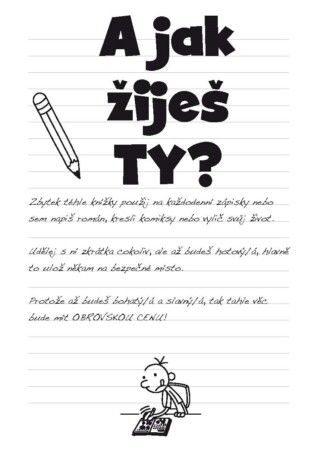 A jak
žiješ
TY?
Zbytek téhle knížky použij na každodenní zápisky nebo
sem napiš román, kresli komiksy nebo vylič svůj život.
Udělej s ní zkrátka cokoliv, ale až budeš hotový/á, hlavně
to ulož někam na bezpečné místo.
Protože až budeš bohatý/á a slavný/á, tak tahle věc
bude mít OBROVSKOU CENU!